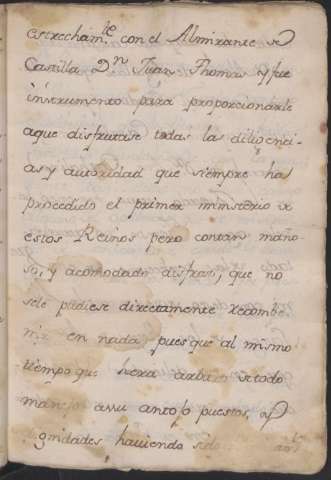 estrecham.te con el Almirante de
Castilla D.n Juan Thomas y fue
instrumento para proporcionarle
aque disfrutase todas las diligenci-
as y autoridad que siempre ha
procedido el primer ministerio de
estos Reinos pero con tan maño-
so, y acomodado disfras, que no
sele pudiese direct amente recombe
nir en nada, pues que al mismo
tiempo que hera de todo
manejo assu antojo puestos, y
dignidades haviendo sido